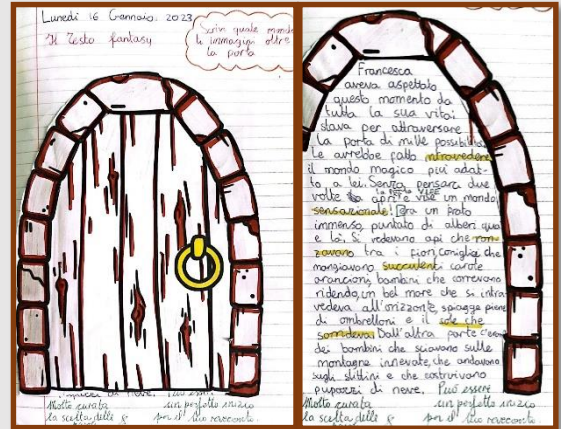 Lunedì 16 Gennaio. 2023
Il Testo fantasy
Scrivi quale mondo
ti immagini oltre
la porta
pupazzi di neve. Può essere
Molto curata un perfetto inizio
la scelta delle per il tuo racconto.
Francesca
aveva aspettato
questo momento da
tutta la sua vita:
stava per attraversare
la porta di mille possibilità.
Le avrebbe fatto intravedere
il mondo magico più adat-
to a lei. Senza pensare due
volte la aprì e vide un mondo
sensazionale! Era un prato
immenso, puntato di alberi qua
e là. Si vedevano api che ron-
zavano tra i fiori, coniglie che
mangiavano succulenti carote
arancioni, bambini che correvano
ridendo, un bel mare che si intra
vedeva all'orizzonte, spiagge piene
di ombrelloni e il sole che
sorrideva. Dall'altra parte c'erano
dei bambini che sciavano sulle
montagne innevate, che andavano
sugli slittini e che costruivano
pupazzi di neve. Può essere
Molto curata un perfetto inizio
la scelta delle per il tuo racconto.